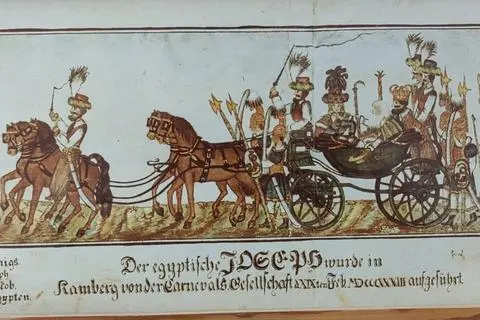 nigs.
ph
ob.
ypten.
Der egyptische JOSEPH wurde in
Kamberg von der Carnevals. Gesellschaft XIXten Feb. MDCCCXXXIII aufgeführt.